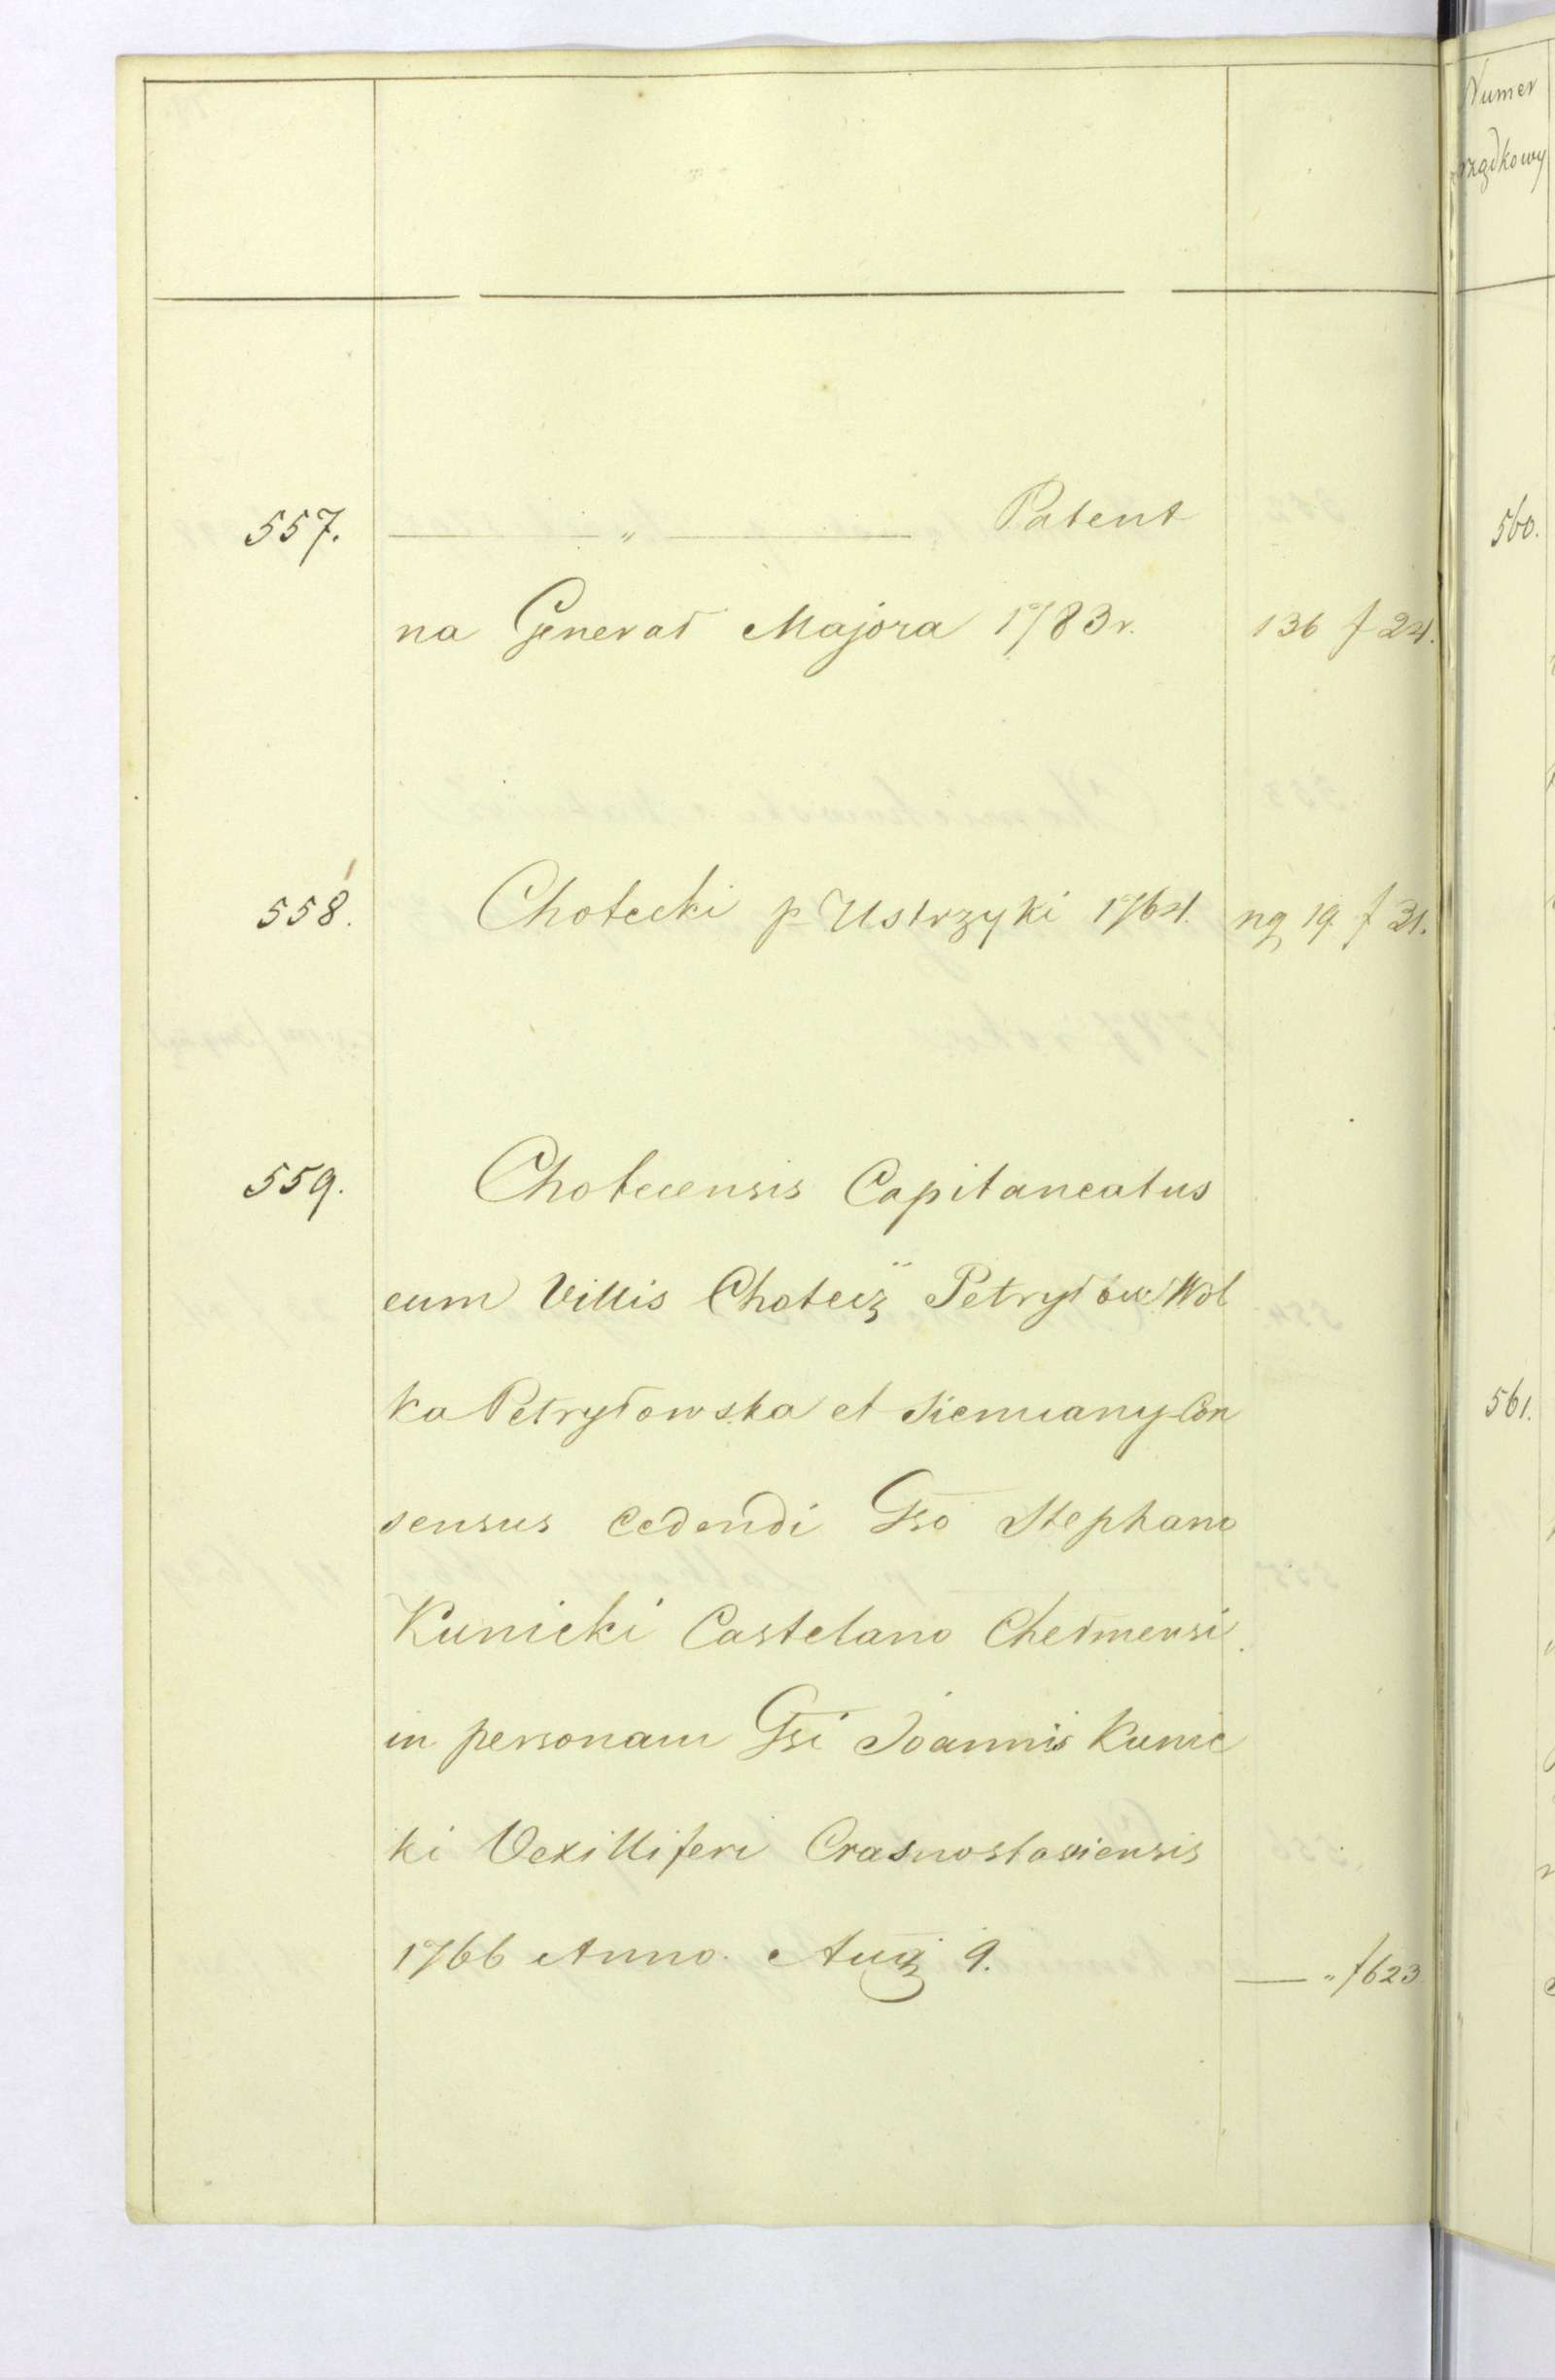 557. — " — Patent
na Generał Majora 1783 r. 136 f 24.
558. Chotecki p Ustrzyki 1764. ng 19. f 31.
559. Chotecensis Capitaneatus
cum Villis Chotecz Petryłów Wol
ka Petryłowska et Siemiany Con
sensus cedendi Gso Stephano
Kunicki Castelano Chełmensi
in personam Gsi Joannis Kunic
ki Vexilliferi Crasnostaviensis
1766 Anno Aug 9. — " f 623
Numer
rządkowy
560.
561.